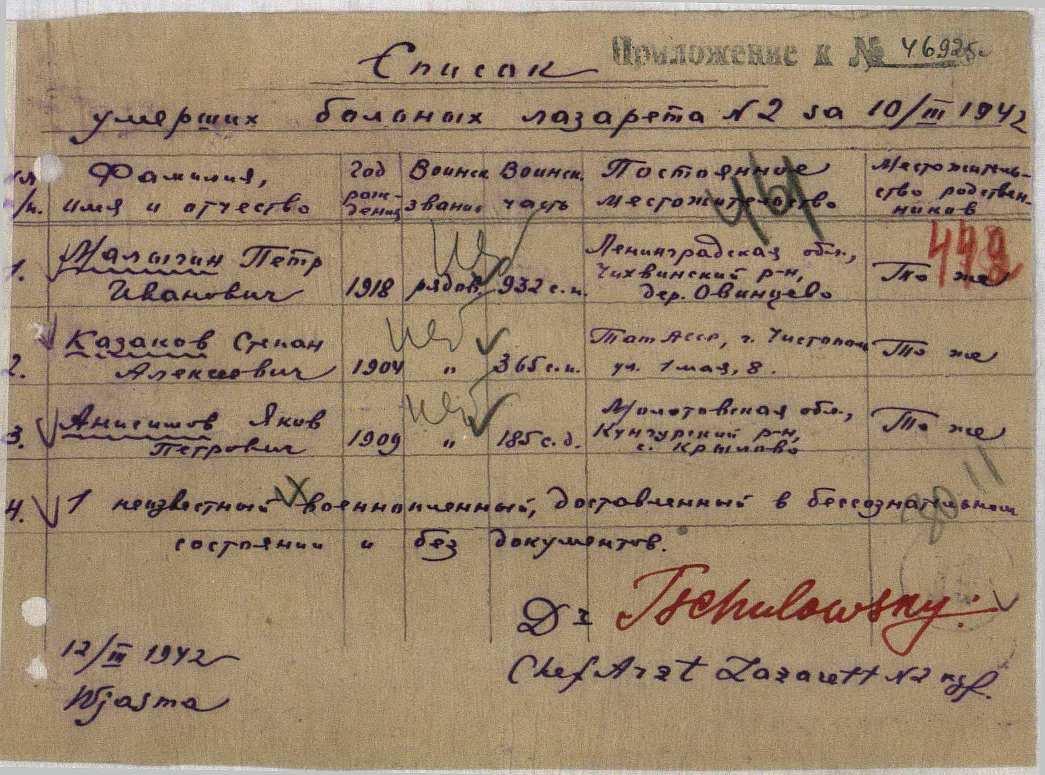 Приложение к № 46925с
Список
умерших больных лазарета N2 за 10/III 1942
Фамилия, имя и отчество
Год рождения
Воинск. звание
Воинск. часть
Постоянное местожительство
Местожительство родственников
461
1. Малыгин Петр Иванович
1918
рядов.
932 с.п.
Ленинградская обл., Тихвинский р-н, дер. Овинцево
То же
2. Казаков Степан Алексеович
1904
"
365 с.п.
Тат АССР, г. Чистополь ул. 1 мая, 8.
То же
3. Анисимов Яков Петрович
1909
"
185 с.д.
Молотовская обл., Кунгурский р-н, с. Крылово
То же
4. 1 неизвестный военнопленный, доставленный в бессознательном
состоянии и без документов.
Dr Tschulowsky.
Chef Arzt Lazarett N2 kgf.
12/III 1942
Wjasma